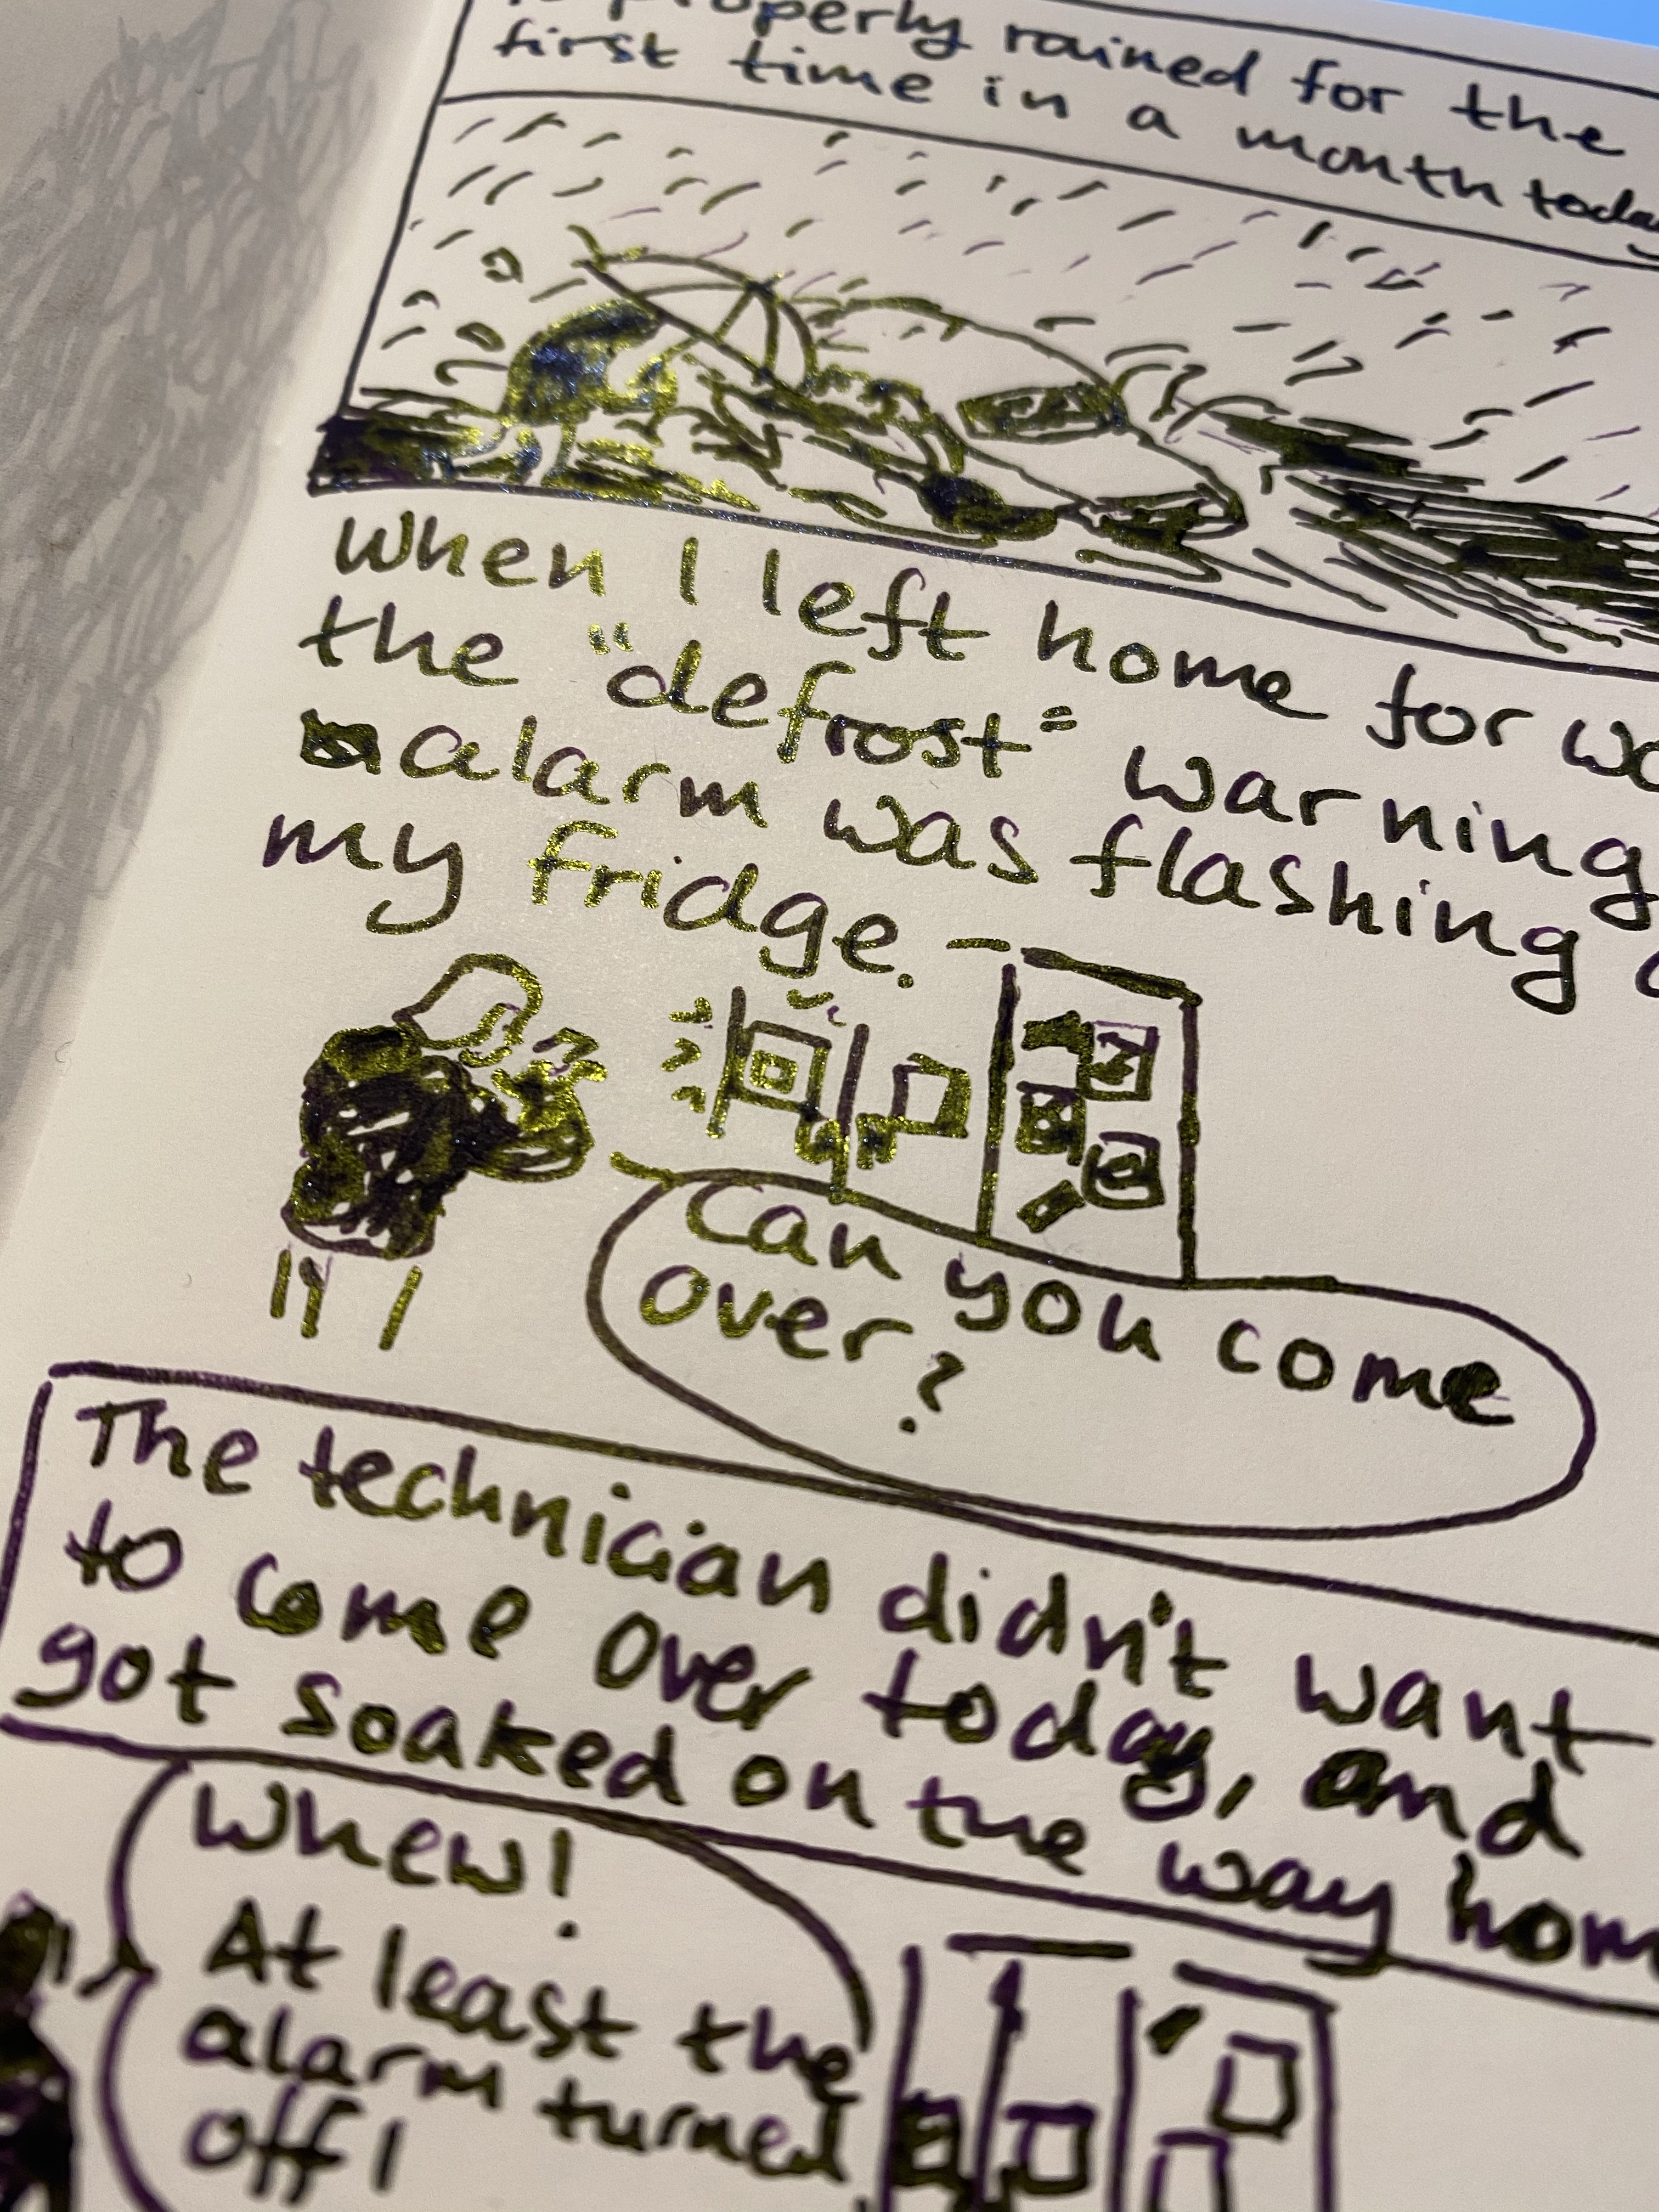 properly rained for the
first time in a month today
When I left home for
the "defrost" warning
alarm was flashing
my fridge.
Can you come
over?
The technician didn't want
to come over today, and
got soaked on the way
Whew!
At least the
alarm turned
off!